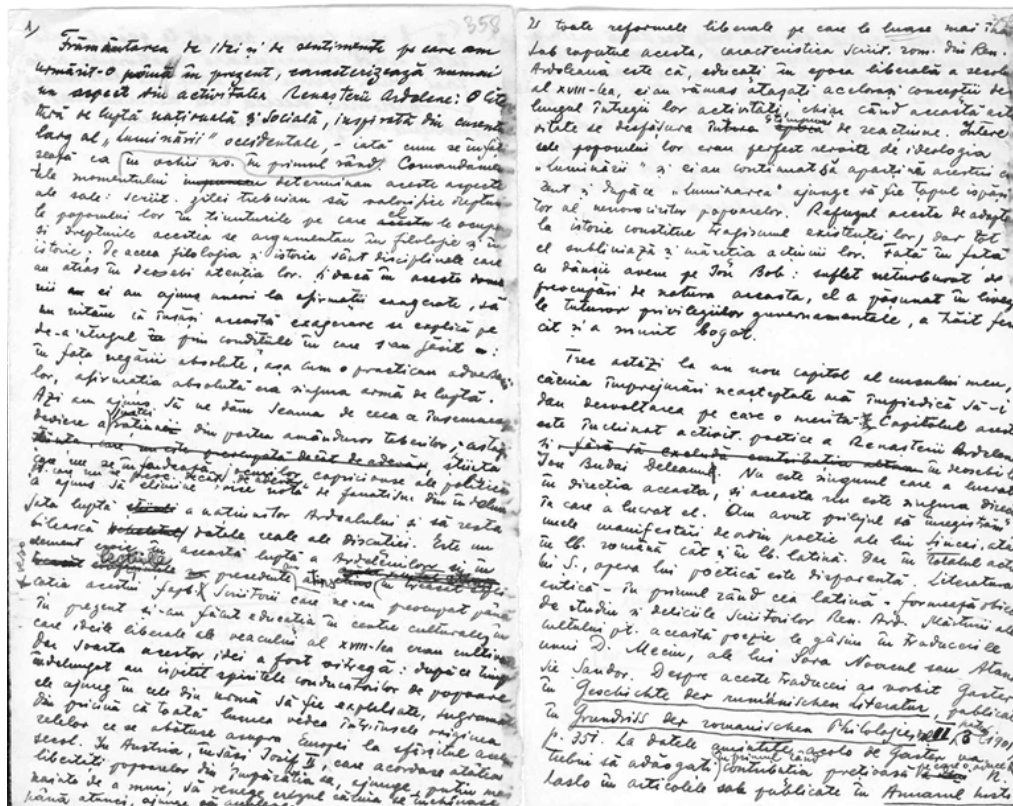 1/
358
Frământarea de idei și de sentimente pe care am
urmărit-o până în prezent, caracterizează numai
un aspect din activitatea Renașterii Ardelene: O lite
tură de luptă națională și socială, inspirată din
larg al „Luminării” occidentale, - iată cum se înfăț
sează ea în ochii no. în primul rând. Comandamen
tele momentului determinau aceste aspecte
ale sale: scriit. zilei trebuiau să valorifice dreptur
le poporului lor în ținuturile pe care le ocupa
și drepturile acestea se argumentau în filologie și în
istorie; de aceea filologia și istoria sânt disciplinele care
au atras în deosebi atenția lor. Și dacă în aceste dome
nii ei au ajuns uneori la afirmații exagerate, să
nu uităm că însăși această exagerare se explică pe
de-a'ntregul prin condițiile în care s'au găsit:
în fața negării absolute, așa cum o practicau adversa
lor, afirmația absolută era singura armă de luptă.
Azi am ajuns să ne dăm seama de ceea ce însemna
deviere a științei din partea amânduror taberilor; astăzi
știința care nu este preocupată decât de adevăr, știința
care nu se înfeudează jocurilor capricioase ale politicii
a ajuns să elimine orice notă de fanatism din îndelun
gata luptă a națiunilor Ardealului și să resta
bilească datele reale ale discuției. Este un
element în această luptă a Ardelenilor și un
precedente în
cația acestui fapt. Scriitorii care ne-au preocupat până
în prezent și-au făcut educația în centre culturale în
care ideile liberale ale veacului al XVIII-lea erau cultiva
Dar soarta acestor idei a fost vitregă: după ce timp
îndelungat au ispitit spiritele conducătorilor de popoare
ele ajung în cele din urmă să fie expulsate, sugrumate
din pricină că toată lumea vedea într'însele originea
relelor ce se abătuse asupra Europei la sfârșitul acelui
secol. În Austria, însăși Iosif II, care acordase atâtea
libertăți popoarelor din împărăția sa, ajunge puțin mai
nainte de a muri, să renege crezul căruia se închinase
până atunci,
2/ toate reformele liberale pe care le luase mai
Sub raportul acesta, caracteristica scriit. rom. din Ren.
Ardeleană este că, educați în epoca liberală a secolu
al XVIII-lea, ei au rămas atașați acelorași concepții de
lungul întregii lor activități, chiar când această
vitate se desfășura de reacțiune. Intere
sele poporului lor erau perfect servite de ideologia
„Luminării” și ei au continuat să aparțină acestui
și după ce „luminarea” ajunge să fie țapul ispăși
tor al nenorocirilor popoarelor. Refuzul acesta de adapta
la istorie constitue tragismul existenței lor, dar tot
el subliniază și măreția acțiunii lor. Față în față
cu dânșii avem pe Ion Bob: suflet neturburat de
preocupări de natura aceasta, el a pășunat în livezi
le tuturor privilegiilor guvernamentale, a trăit feri
cit și a murit bogat.
Trec astăzi la un nou capitol al cursului meu,
căruia împrejurări neașteptate mă împiedică să-i
dau desvoltarea pe care o merită. Capitolul acest
este închinat activit. poetice a Renașterii Ardelene
și fără să excludă contribuția altora în deosebi lu
Ion Budai Deleanu. Nu este singurul care a lucrat
în direcția aceasta, și aceasta nu este singura direcț
în care a lucrat el. Am avut prilejul să înregistrăm
unele manifestări de ordin poetic ale lui Șincai, atât
în lb. română cât și în lb. latină. Dar în totalul activ
lui Ș., opera lui poetică este disparentă. Literatura
antică - în primul rând cea latină - formează obiec
de studiu și deliciile scriitorilor Ren. Ard. Mărturii ale
cultului pt. această poezie le găsim în traducerile
unui D. Meciu, ale lui Sava Novacul sau Atana
sie Sandor. Despre aceste traduceri a vorbit Gaster
în Geschichte der rumänischen Literatur, publicat
în Grundriss der romanischen Philologie, II, 3 (1901)
p. 351. La datele amintite acolo de Gaster va
trebui să adăogați în primul rând contribuția prețioasă pe care o aduce N.
Laslo în articolele sale publicate în Anuarul Inst.